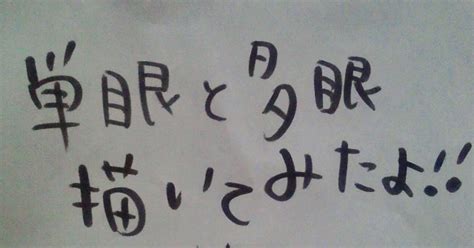 単眼と多眼
描いてみたよ!!